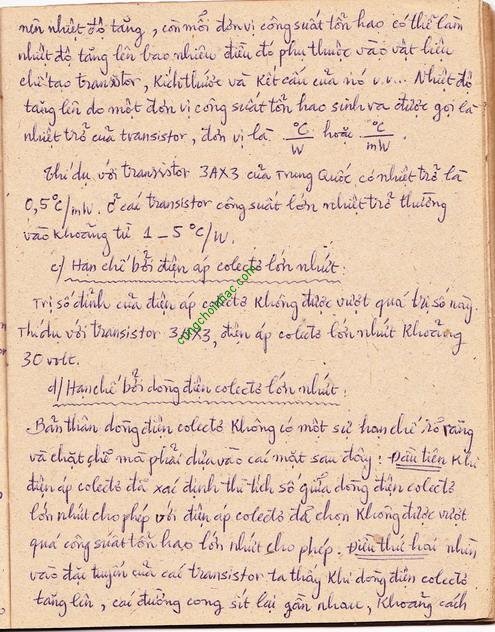 nên nhiệt độ tăng, còn mỗi đơn vị công suất tổn hao có thể làm
nhiệt độ tăng lên bao nhiêu điều đó phụ thuộc vào vật liệu
chế tạo transistor, kích thước và kết cấu của nó v.v... Nhiệt độ
tăng lên do một đơn vị công suất tổn hao sinh ra được gọi là
nhiệt trở của transistor, đơn vị là °C/W hoặc °C/mW.
Thí dụ với transistor 3AX3 của Trung Quốc có nhiệt trở là
0,5°C/mW. Ở các transistor công suất lớn nhiệt trở thường
vào khoảng từ 1 - 5 °C/W.
c/ Hạn chế bởi điện áp colectơ lớn nhứt:
Trị số đỉnh của điện áp colectơ không được vượt quá trị số này
Thí dụ với transistor 3AX3, điện áp colectơ lớn nhứt khoảng
30 volt.
d/ Hạn chế bởi dòng điện colectơ lớn nhứt:
Bản thân dòng điện colectơ không có một sự hạn chế rõ ràng
và chặt chẽ mà phải dựa vào các mặt sau đây: Đầu tiên khi
điện áp colectơ đã xác định thì tích số giữa dòng điện colectơ
lớn nhứt cho phép với điện áp colectơ đã chọn không được vượt
quá công suất tổn hao lớn nhứt cho phép. Điều thứ hai nhìn
vào đặc tuyến của các transistor ta thấy khi dòng điện colectơ
tăng lên, các đường cong sít lại gần nhau, khoảng cách
congchonhac.com